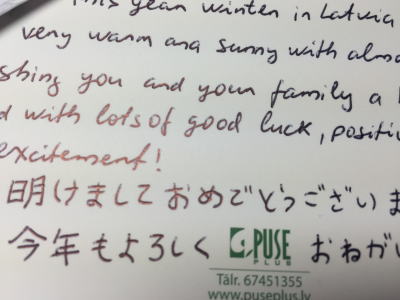 This year winter in Latvia
very warm and sunny with
shing you and your family a
d with lots of good luck,
excitement!
明けましておめでどうございま
今年もよろしく G. PUSE PLUS おねがい
Tālr. 67451355
www.puseplus.lv